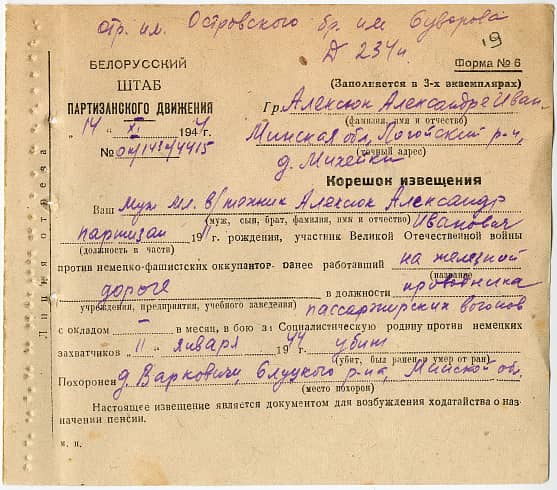 отр. им. Островского бр. им Суворова
Д 234и
19
БЕЛОРУССКИЙ
ШТАБ
ПАРТИЗАНСКОГО ДВИЖЕНИЯ
14 " XI 1944 г.
№
Форма № 6
(Заполняется в 3-х экземплярах)
Гр. Алексюк Александре Иван.
(фамилия, имя и отчество)
Минская обл, Логойский р-н,
(точный адрес)
д. Михейки
Линия отреза
Корешок извещения
Ваш Муж мл. в/техник Алексюк Александр
(муж, сын, брат, фамилия, имя и отчество) Иванович
партизан 1911 г. рождения, участник Великой Отечественной войны
(должность в части)
против немецко-фашистских оккупантов ранее работавший на железной
(название
дороге в должности проводника
учреждения, предприятия, учебного заведения) пассаржирских вогонов
с окладом — в месяц, в бою за Социалистическую родину против немецких
захватчиков "11" января 1944 убит
(убит, был ранен и умер от ран)
Похоронен д. Варковичи, Слуцкого р-на, Минской обл.
(место похорон)
Настоящее извещение является документом для возбуждения ходатайства о наз-
начении пенсии.
м. п.